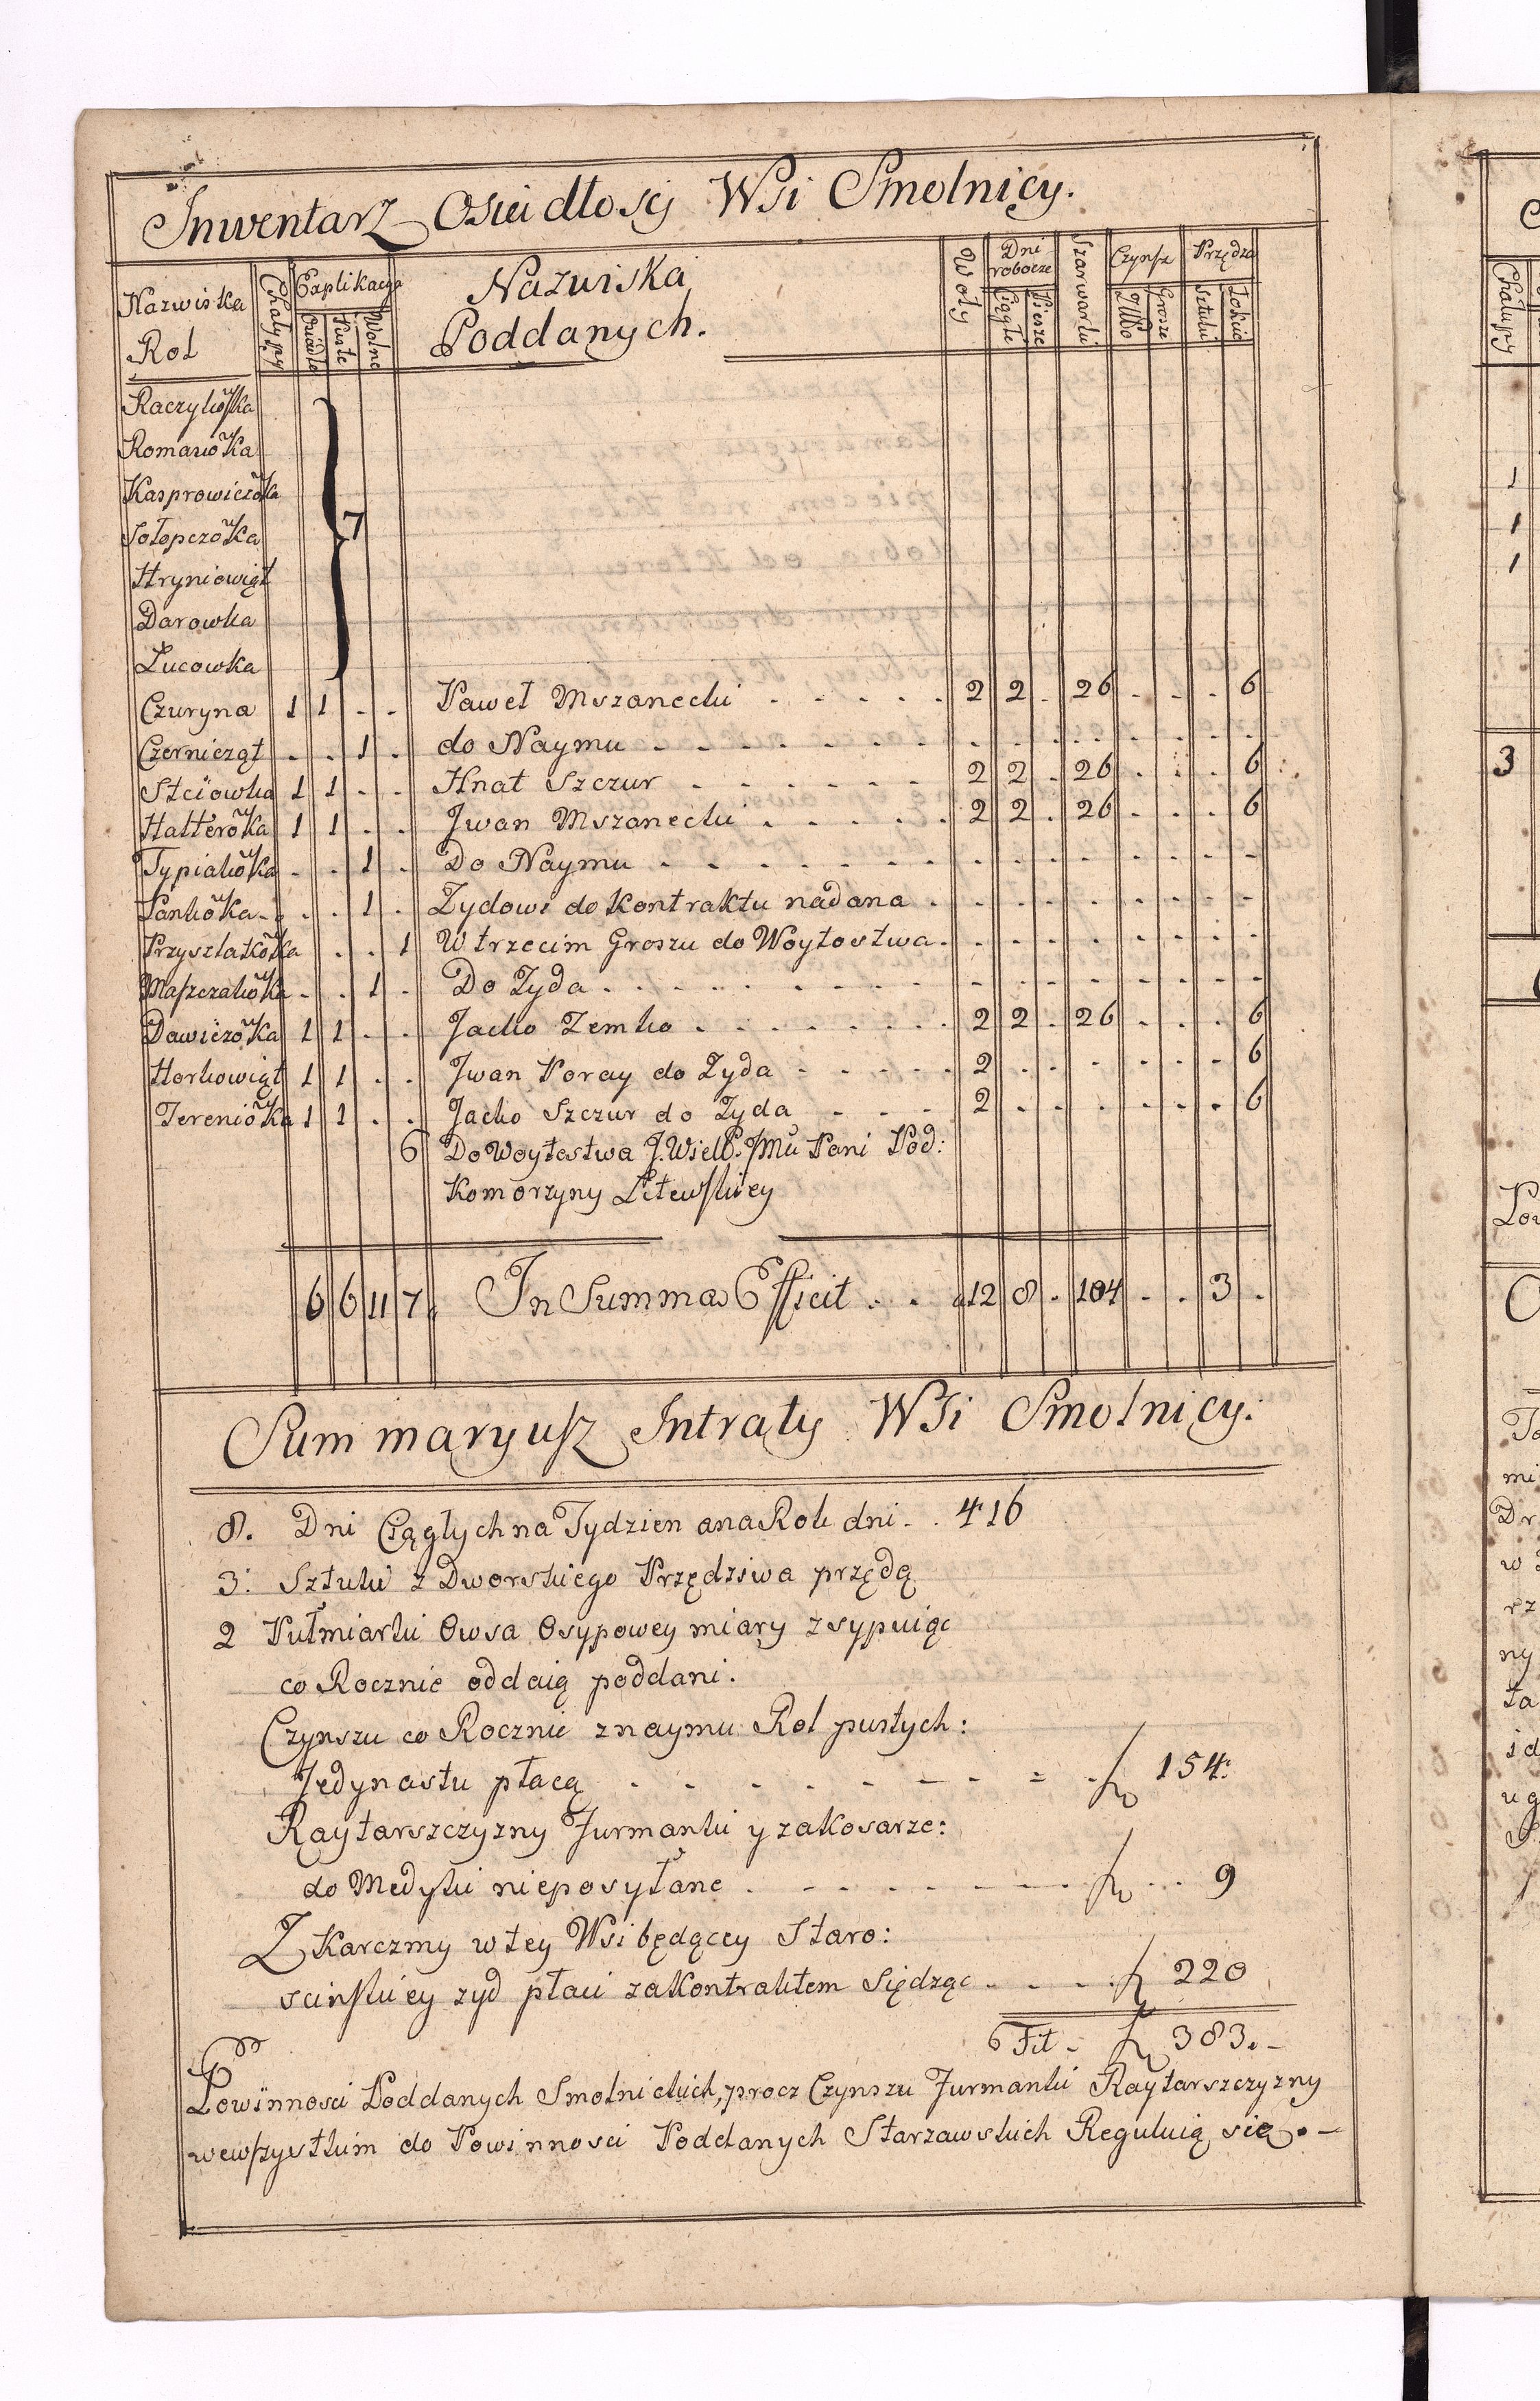 Inwentarz Osieidłoscj Wsi Smolnicy.
Nazwiska Rol | Chałupy | Explikacya | Nazwiska Poddanych. | Woły | Dni robocze | Szarwarki | Czynsz | Przędza
Osiadłe | Puste | Wolne | Ciągłe | Piesze | Złłło | Grosze | Sztuki | Łokcie
Raczykowska
Romanowka
Kasprowiczowka
Sołopczowka 7
Hryniowięt
Darowka
Łucowka
Czuryna 1 1 . . Paweł Mszanecki . . . . . 2 2 . 26 . . . 6
Czerniczęt . . 1 . do Naymu - - - - - - -
Stciowka 1 1 . . Hnat Szczur - - - - - - 2 2 . 26 . . . 6
Hatterowka 1 1 . . Jwan Mszanecki . . . . . 2 2 . 26 . . . 6
Typiakowka . . 1 . Do Naymu - - - - - - -
Pankowka . . 1 . Zydowi do Kontraktu nadana .
Przyszlakowka . . 1 W trzecim Groszu do Woytostwa.
Maszczakowka . . 1 . Do Zyda . - - - - - - -
Dawiczowka 1 1 . . Jacko Zemko . . . . . . . 2 2 . 26 . . . 6
Horkowięt 1 1 . . Jwan Poray do Zyda - - - - . 2 . . - - - - 6
Tereniowka 1 1 . . Jacko Szczur do Zyda - - - 2 . . . . . . 6
6 Do Woytostwa J. Wielb. Jmu Pani Pod:
Komorzyny Litewskiey
6 6 11 7. In Summa Efficit . . . 12 8 . 104 . . 3 .
Summaryusz Intraty Wsi Smolnicy.
8. Dni Ciągłych na Tydzien ana Rok dni . . 416
3. Sztuki z Dworskiego Przędziwa przędą
2 Pułmiarki Owsa Osypowey miary zsypuiąc
co Rocznie oddaią poddani.
Czynszu co Rocznie z naymu Rol pustych:
Jedynastu płacą . - - - - - - - = . fl 154:
Raytarszczyzny Jurmanki y zakosarze:
do Medyki nieposyłane . - - - - - - - . fl . . . 9
Z Karczmy w tey Wsi będącey Staro:
scinskiey zyd płaci za Kontraktem Siędząc - - - . fl 220
Fit - fl 383.-
Powinnosci Poddanych Smolnickich, procz Czynszu Jurmanki Raytarszczyzny
wewszystkim do Powinnosci Poddanych Starzawskich Reguluią się.-